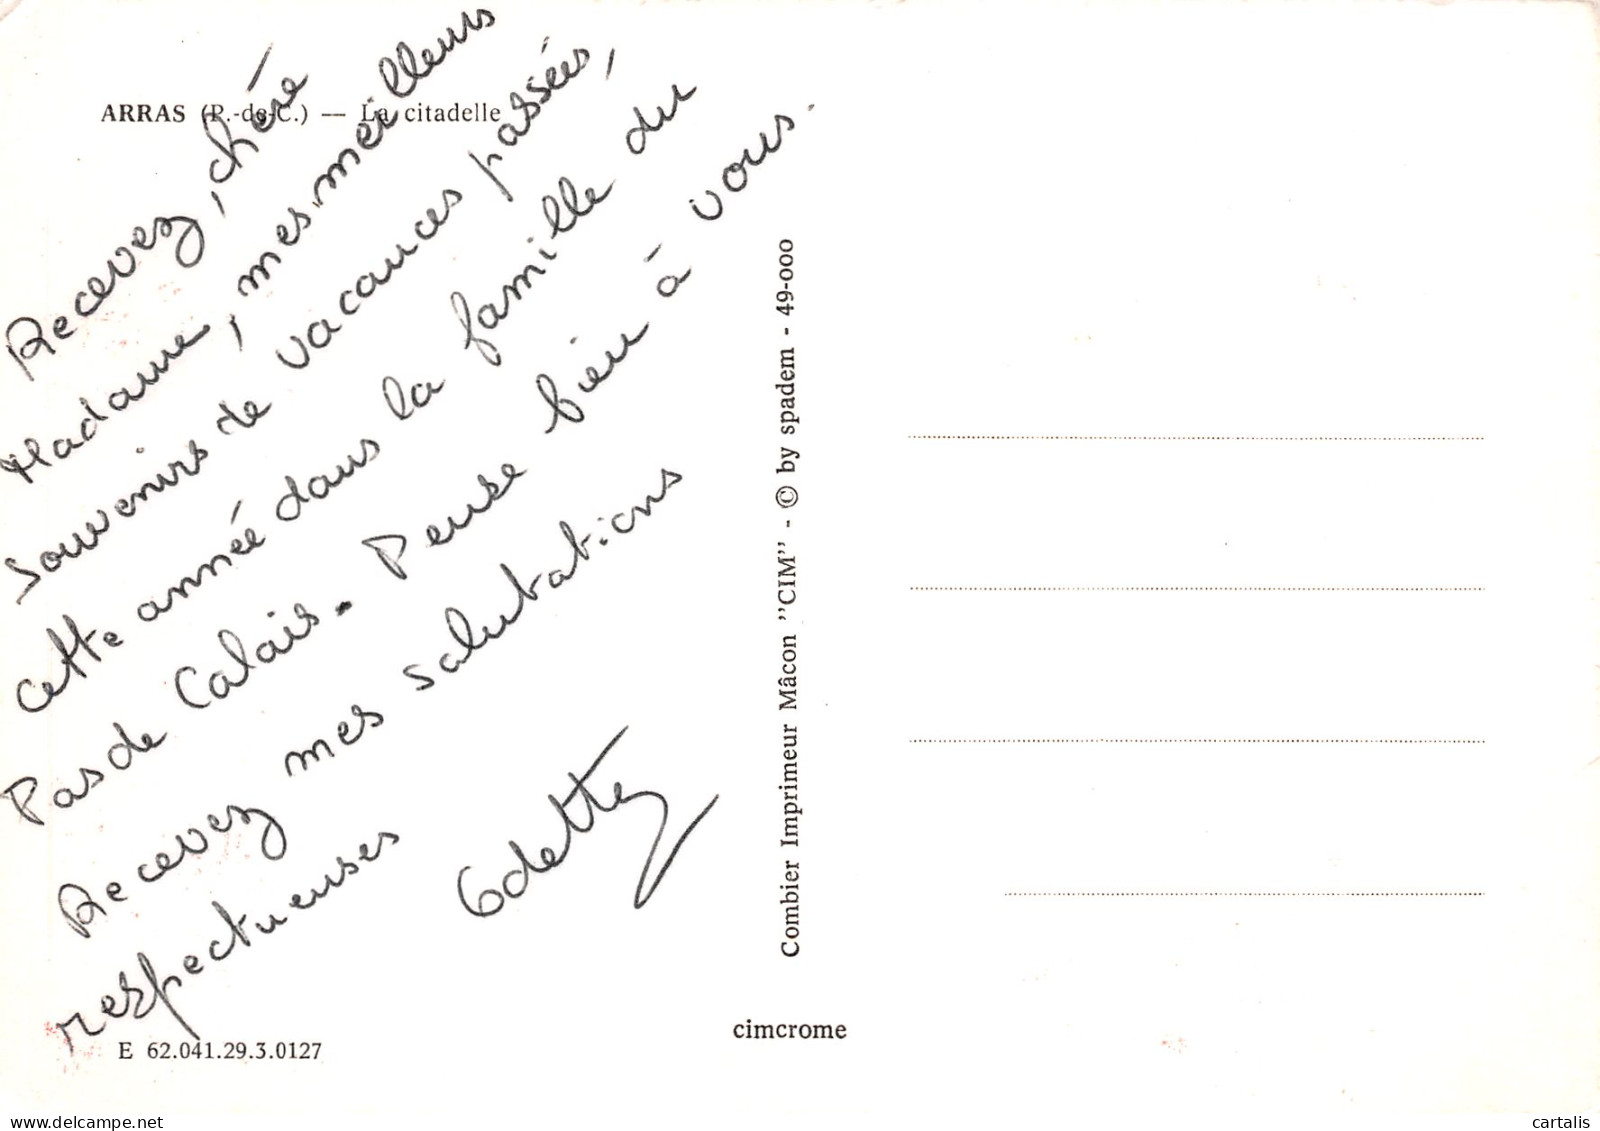 ARRAS (P.-de-C.) — La citadelle
Recevez, chère
Madame, mes meilleurs
souvenirs de vacances passées,
cette année dans la famille du
Pas de Calais. Pense bien à vous.
Recevez mes salutations
respectueuses
Odette
E 62.041.29.3.0127
Combier Imprimeur Mâcon "CIM" - © by spadem - 49-000
cimcrome
cartalis